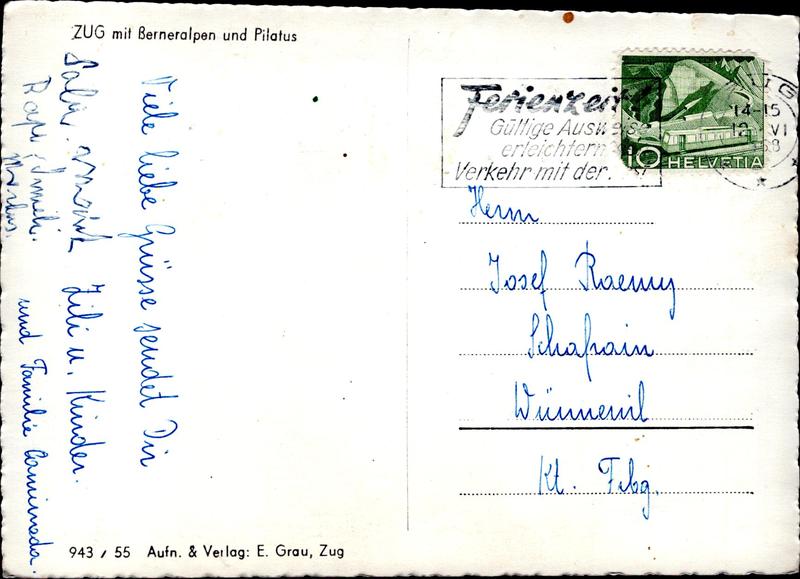 ZUG mit Berneralpen und Pilatus
Viele liebe Grüsse sendet Dir
Zili u. Kinder.
und Familie
943 / 55 Aufn. & Verlag: E. Grau, Zug
Ferienzeit!
Gültige Ausweise
erleichtern
Verkehr mit der
14-15
VI
10 HELVETIA
Herrn
Josef Raemy
Schafrain
Wünnewil
Kt. Frbg.